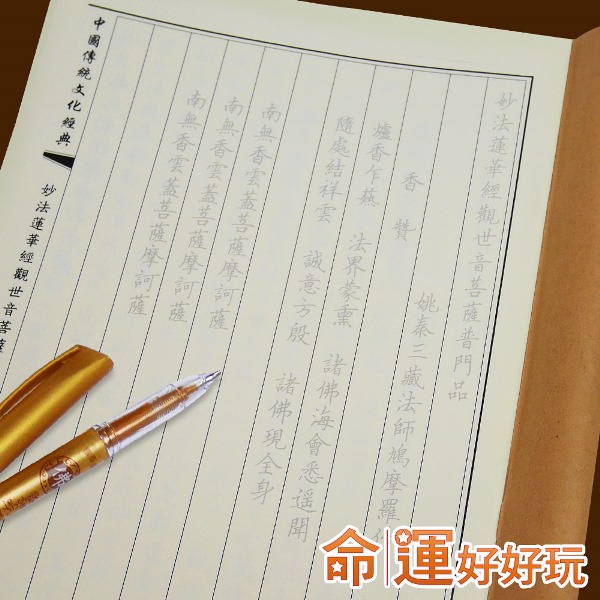 妙法蓮華經觀世音菩薩普門品
姚秦三藏法師鳩摩羅
香 贊
爐香乍爇 法界蒙熏 諸佛海會悉遙聞
隨處結祥雲 誠意方殷 諸佛現全身
南無香雲蓋菩薩摩訶薩
南無香雲蓋菩薩摩訶薩
南無香雲蓋菩薩摩訶薩
中國傳統文化經典
妙法蓮華經觀世音菩薩
佛
命運好好玩